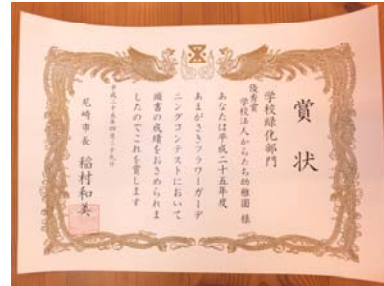 賞状
学校緑化部門
優秀賞
学校法人からたち幼稚園 様
あなたは平成二十五年度
あまがさきフラワーガーデ
ニングコンテストにおいて
頭書の成績をおさめられま
したのでこれを賞します
平成二十五年四月二十九日
尼崎市長 稲村和美